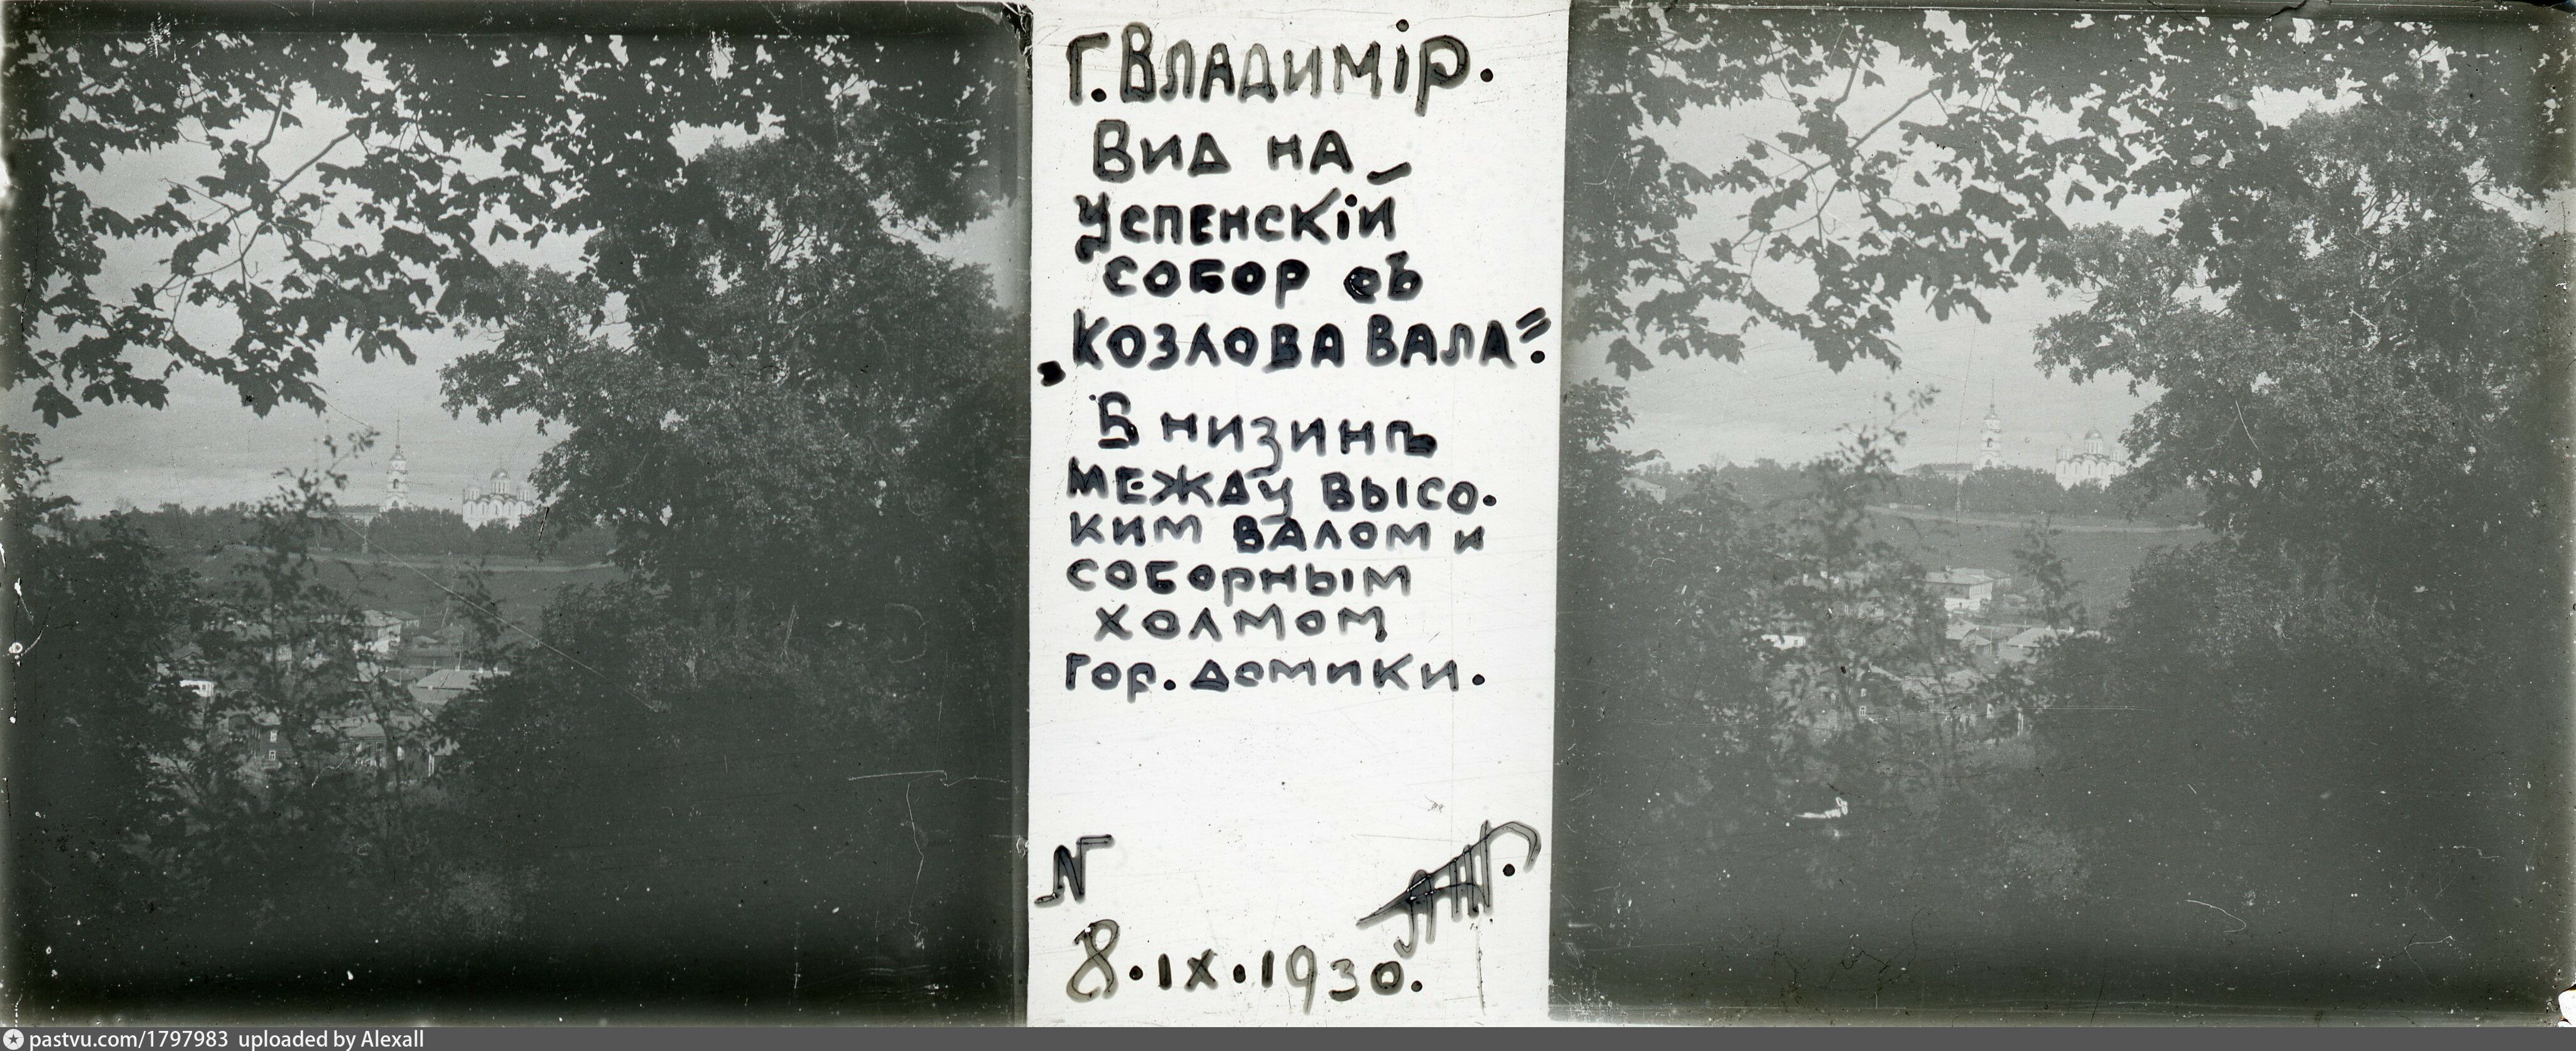 Г. ВЛАДИМІР.
ВИД НА
УСПЕНСКІЙ
СОБОР СЪ
„КОЗЛОВА ВАЛА".
В НИЗИНѢ
МЕЖДУ ВЫСО-
КИМ ВАЛОМ И
СОБОРНЫМ
ХОЛМОМ
ГОР. ДОМИКИ.
N
8.IX.1930.
pastvu.com/1797983 uploaded by Alexall